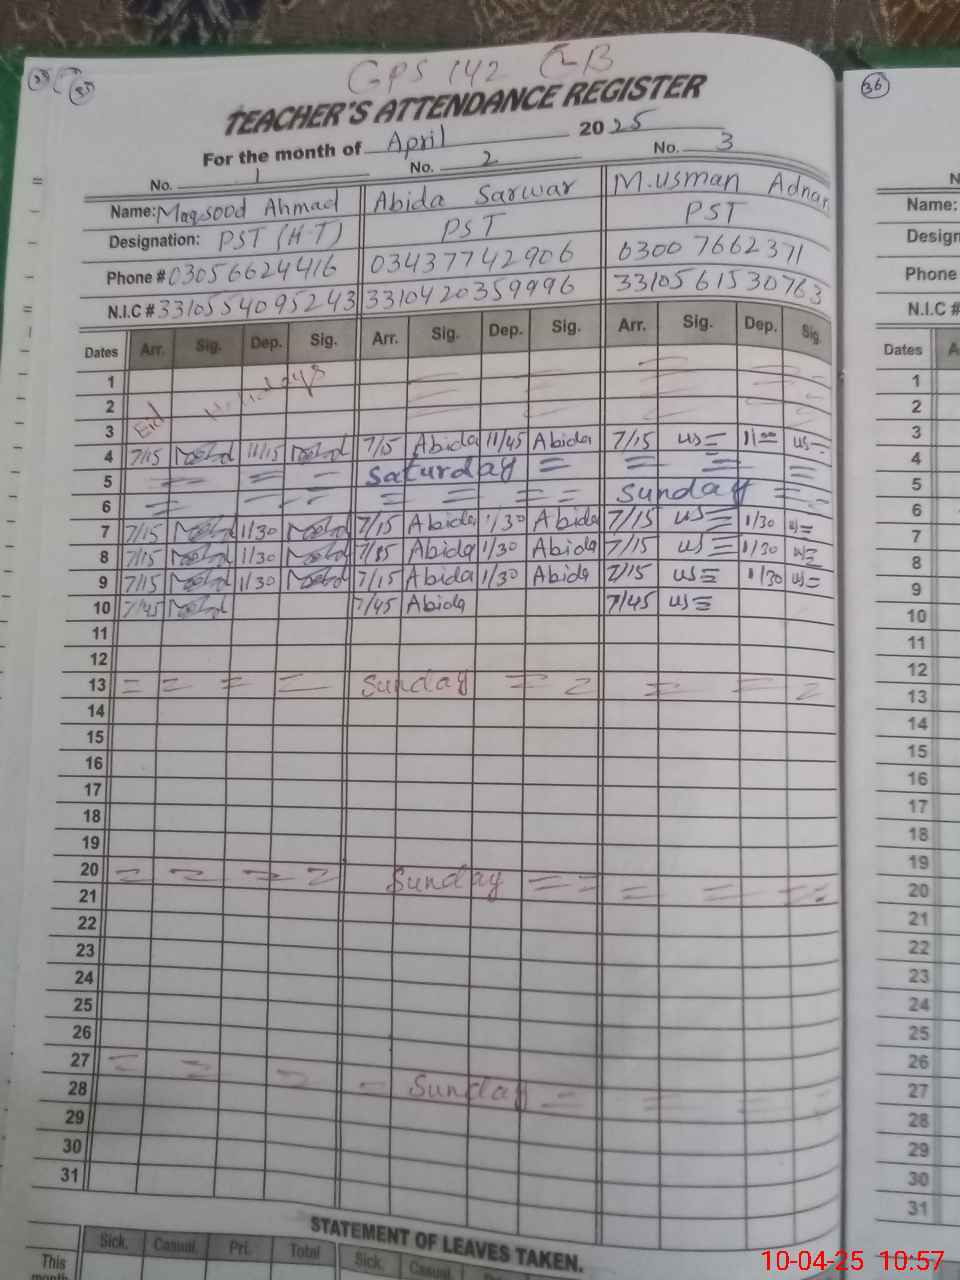 35
36
GPS 142 GB
TEACHER'S ATTENDANCE REGISTER
For the month of April 2025
No. 1 No. 2 No. 3
Name: Maqsood Ahmad Abida Sarwar M.usman Adnan
Designation: PST (H-T) PST PST
Phone # 03056624416 03437742906 03007662371
N.I.C # 3310554095243 3310420359996 3310561530763
Dates Arr. Sig. Dep. Sig. Arr. Sig. Dep. Sig. Arr. Sig. Dep. Sig.
1
2
3 Eid Holidays
4 7/15 11/15 7/15 Abida 11/45 Abida 7/15 us 11:00 us
5 = = = Saturday = = = =
6 = = = = = = = Sunday = =
7 7/15 1/30 7/15 Abida 1/30 Abida 7/15 us 1/30 us
8 7/15 1/30 7/15 Abida 1/30 Abida 7/15 us 1/30 us
9 7/15 1/30 7/15 Abida 1/30 Abida 7/15 us 1/30 us
10 7/45 7/45 Abida 7/45 us
11
12
13 = = = = Sunday = = = = =
14
15
16
17
18
19
20 = = = = Sunday = = = = =
21
22
23
24
25
26
27 = = = - Sunday = = = =
28
29
30
31
STATEMENT OF LEAVES TAKEN.
Sick. Casual. Pri. Total Sick. Casual.
This
month
Name:
Phone #
N.I.C #
Dates A
1
2
3
4
5
6
7
8
9
10
11
12
13
14
15
16
17
18
19
20
21
22
23
24
25
26
27
28
29
30
31
10-04-25 10:57